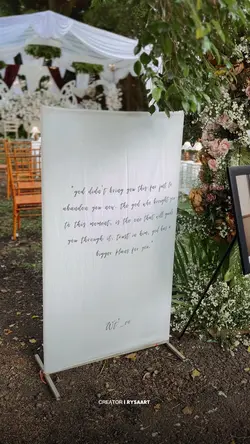 "god didn't bring you this far just to
abandon you now. the god who brought you
to this moment, is the one that will guide
you through it, trust in him, god has a
bigger plans for you."
CREATOR | RYSAART